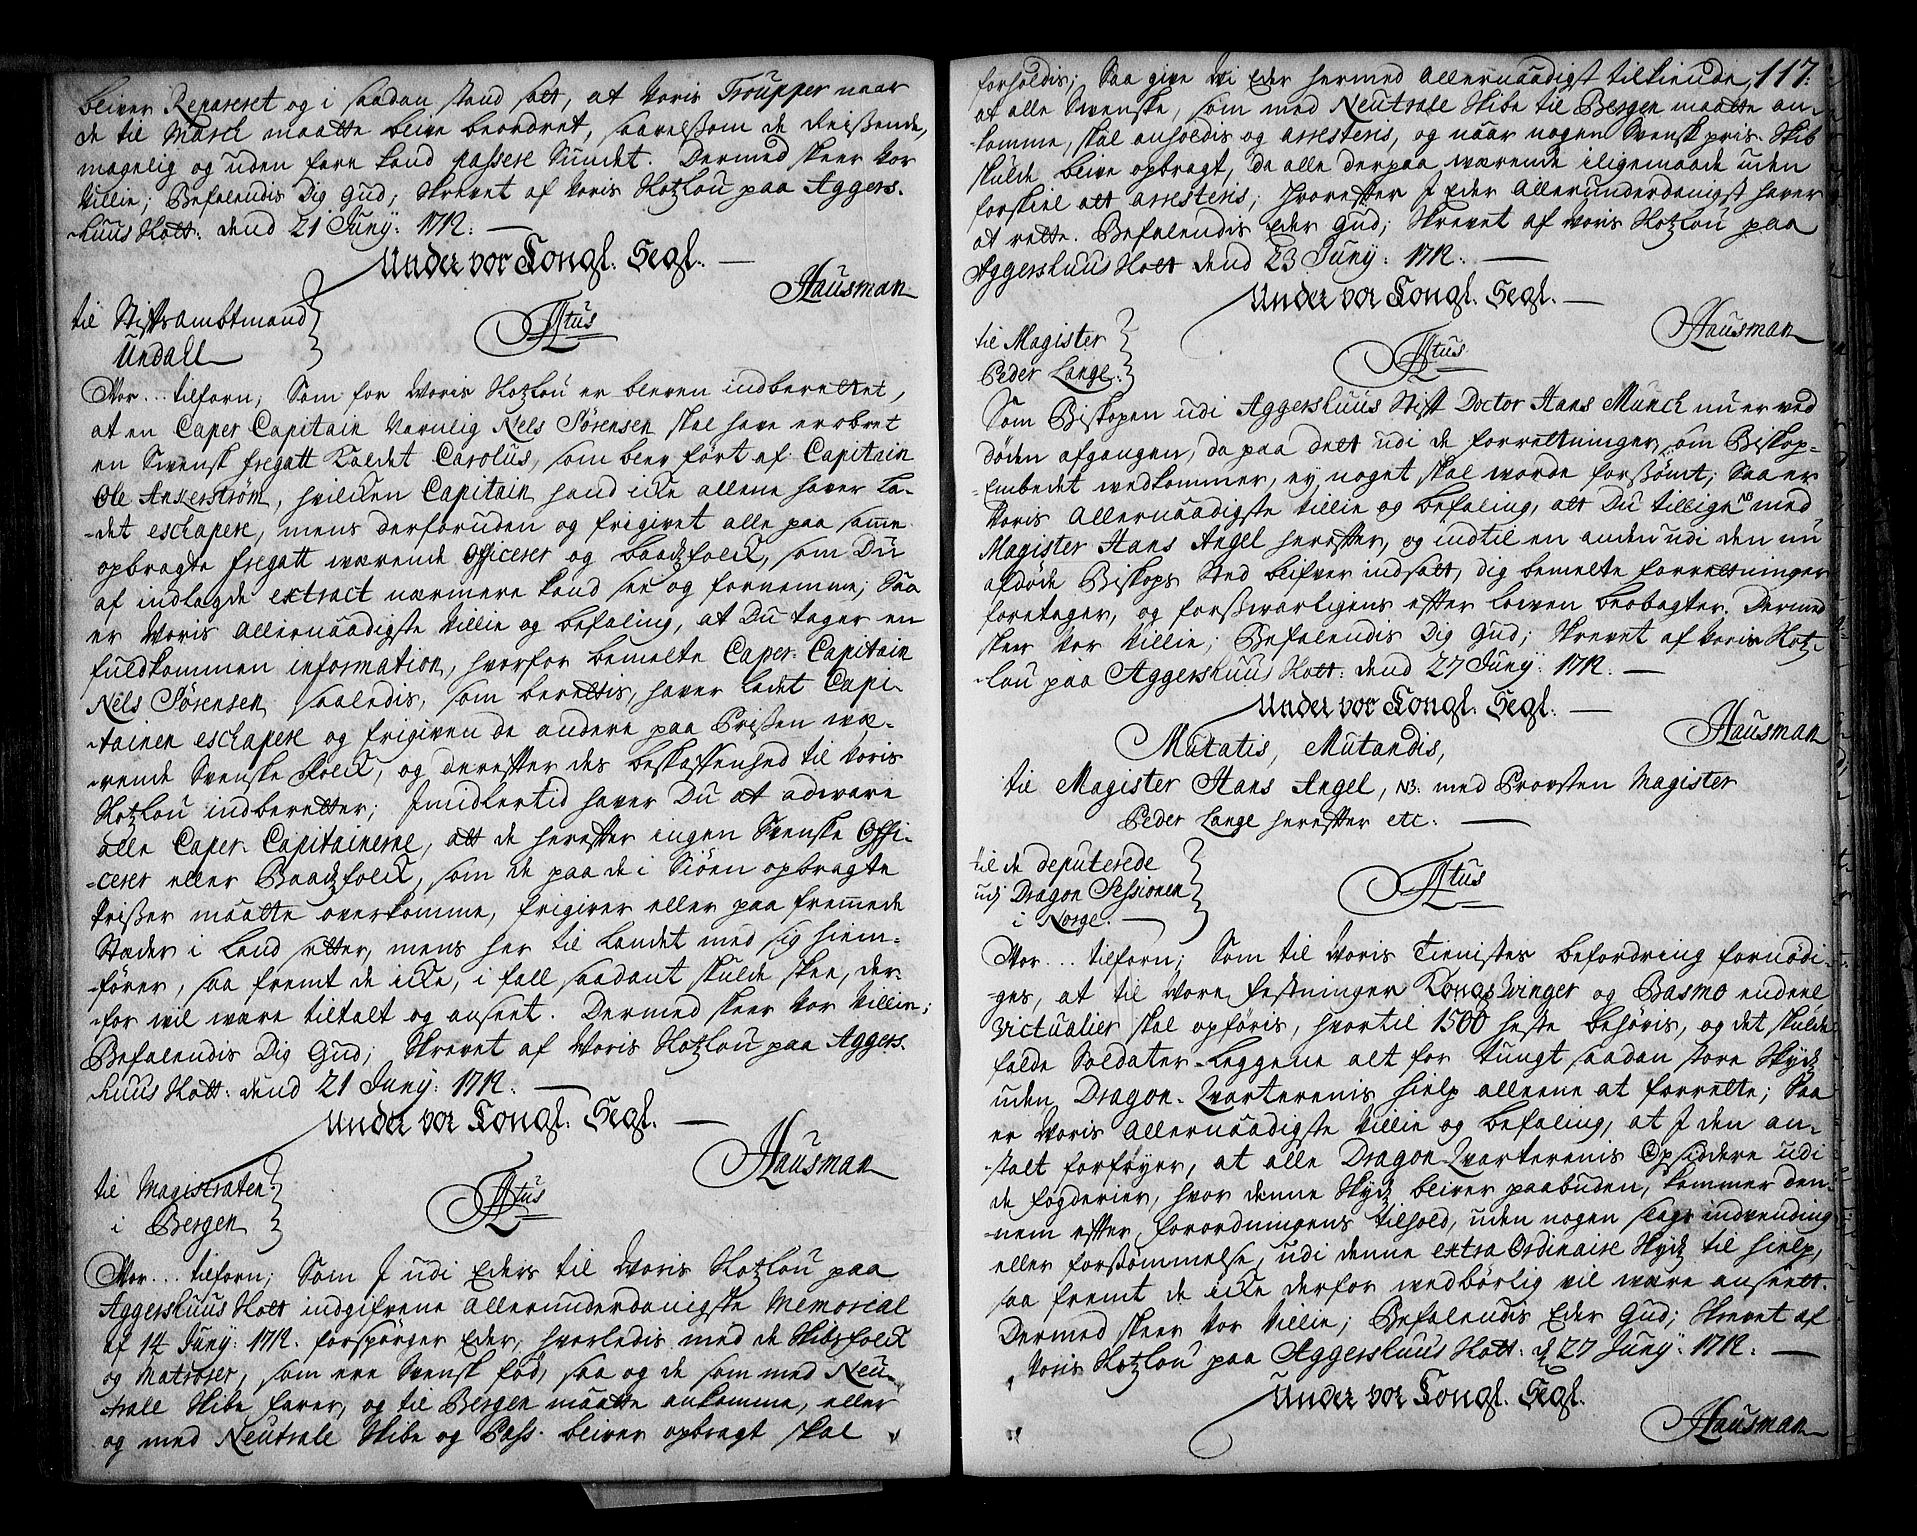 bliver Repareret og i saadan stand satt, at Voris Troupper naar
de til March maatte blive beordret, saavelsom de Reißende,
magelig og uden fare kand passere Sundet. Dermed skeer Vor
Villie; Befalendis Dig Gud; Skrevet af Voris Slotzlou paa Aggers-
-huus Slott: dend 21 Junÿ: 1712:
Under vor Kongl. Segl.
Hausman
til Stiftsambtmand
Undall
Fr: 4tus
Vor... tilforn; Som for Voris Slotzlou er bleven indberettet,
at en Caper Capitain Navnlig Nels Sörensen skal have erobret
en Svensk fregatt Kaldet Carolus, som blev fört af Capitain
Ole Ankerström, hvilken Capitain hand icke allene haver la-
-det eschapere, mens derforuden og frigivet alle paa samme
opbragte fregatt værende Officerer og Baadzfolck, som Du
af indlagde extract nærmere kand see og fornemme; Saa
er Voris Allernaadigste Villie og befaling, at Du tager en
fuldkommen information, hvorfor bemelte Caper-Capitain
Nels Sörensen saaledis, som berettis, haver ladet Capi-
-tainen eschapere og frigiven de andere paa Prißen væ-
-rende Svenske Folck, og derefter des beskaffenhed til Voris
Slotzlou indberetter; Imidlertid haver Du at advare
alle Caper-Capitainerne, att de herefter ingen Svenske Offi-
-cerer eller Baadzfolck, som de paa de i Siöen opbragte
Prißer maatte overkomme, frigiver eller paa fremmede
Stæder i Land setter, mens her til Landet med sig hiem-
-förer, saa fremt de icke, i fall saadant skulde skee, der-
-for vil være tiltalt og anseet. Dermed skeer Vor Villie;
Befalendis Dig Gud; Skrevet af Voris Slotzlou paa Aggers-
-huus Slott: dend 21 Junÿ: 1712.
Under vor Kongl. Segl.
Hausman
til Magistraten
i Bergen
Vor... tilforn; Som I udi Eders til Voris Slotzlou paa
Aggershuus Slott indgifvene allerunderdanigste Memorial
af 14 Junÿ: 1712. forspörger Eder, hvorledis med de Skibsfolck
og Matroser, som ere Svensk föd, saa og de som med Neu-
-trale Skibe farer, og til Bergen maatte ankomme, eller
og med Neutrale Skibe og Pass. bliver opbragt skal
117.
forholdis; Saa give Vi Eder hermed Allernaadigst tilkiende,
at alle Svenske, som med Neutrale Skibe til Bergen maatte an-
-komme, skal anholdis og arresteris, og naar nogen Svensk pris-Skib
skulde blive opbragt, da alle derpaa værende iligemaade uden
forskiel att arresteris; hvorefter I Eder Allerunderdanigst haver
at rette. Befalendis Eder Gud; Skrevet af Voris Slotzlou paa
Aggershuus Slott dend 23 Junÿ: 1712.
Under vor Kongl. Segl.
Hausman
til Magister
Peder Lange.
Som Biskopen udi Aggershuus Stift Doctor Hans Munck nu er ved
döden afgangen, da paa dett udi de forretninger, som Biskop-
-Embedet vedkommer, ey noget skal worde forsömt; Saa er
Voris Allernaadigste Villie og befaling, att Du tillige NB med
Magister Hans Angel herefter, og indtil en anden udi den nu
afdöde Biskops Sted blifver indsatt, dig bemelte forretninger
foretager, og forsvarligens efter Loven beobagter. Dermed
skeer Vor Villie; Befalendis Dig Gud; Skrevet af Voris Slotz-
-lou paa Aggershuus Slott: dend 27 Junÿ: 1712.
Under vor Kongl. Segl.
Hausman
Mutatis, Mutandis,
til Magister Hans Angel, NB: med Provsten Magister
Peder Lange herefter etc.
til de deputerede
udj Dragon Sessionen
i Norge.
Vor... tilforn; Som til Voris Tienistes befordring fornödi-
-ges, at til Vore festninger Kongswinger og Basmo endeel
victualier skal opföris, hvortil 1500 heste behövis, og det skulde
falde Soldater-Leggene alt for tungt saadan store Skydz
uden Dragon-Qvarterenis hielp alleene at forrette; Saa
er Voris Allernaadigste Villie og befaling, at I den an-
-stalt forföyer, at alle Dragon-Qvarterenis Opsiddere udi
de fogderier, hvor denne Skydz bliver paabuden, kommer den-
-nem efter forordningens tilhold, uden nogen slags indvending
eller forsömmelse, udi denne extra Ordinaire Skydz til hielp,
saa fremt de icke derfor vedbörlig vil være anseett.
Dermed skeer Vor Villie; Befalendis Eder Gud; Skrevet af
Voris Slotzlou paa Aggershuus Slott: d. 27 Junÿ: 1712.
Under vor Kongl. Segl.
Hausman